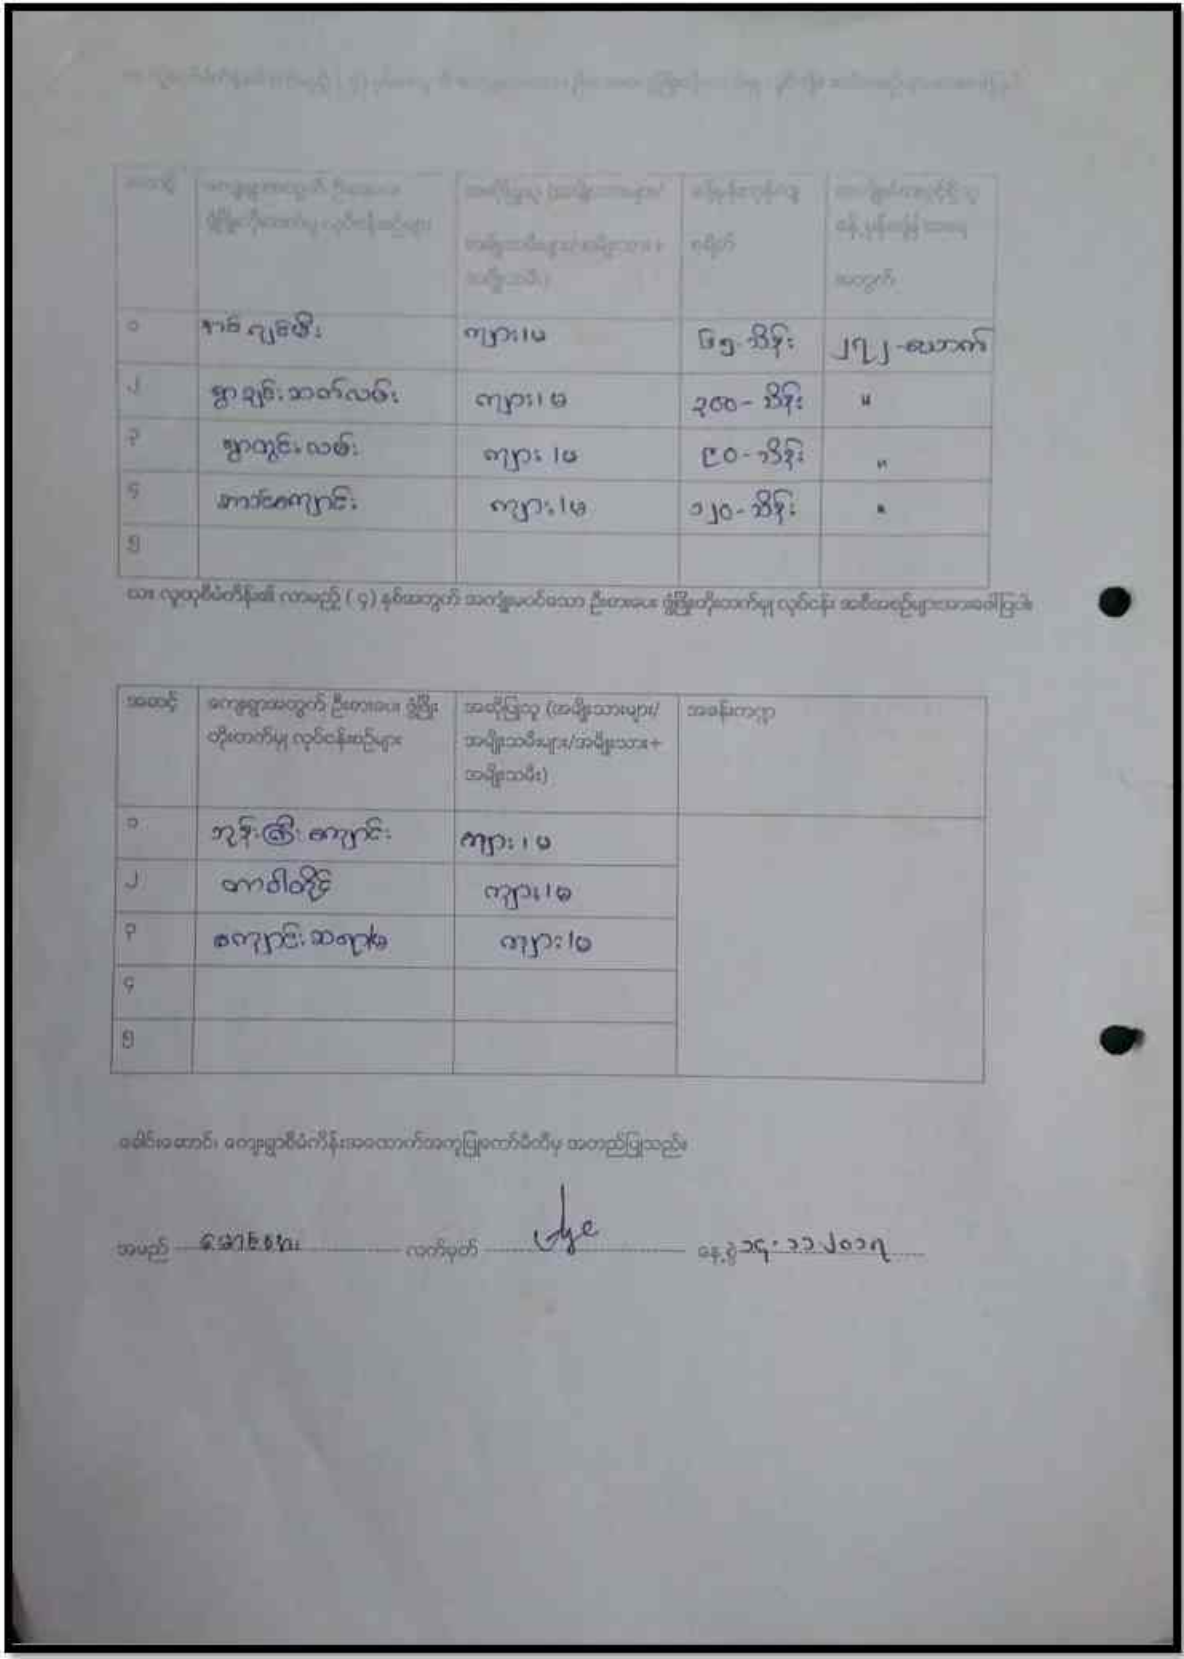 အဆင့်
ကျေးရွာအတွက် ဦးစားပေး
ဖွံ့ဖြိုးတိုးတက်မှု လုပ်ငန်းစဉ်များ
အဆိုပြုသူ (အမျိုးသားများ/
အမျိုးသမီးများ/အမျိုးသား+
အမျိုးသမီး)
ခန့်မှန်းကုန်ကျ
စရိတ်
အတွက်
၁ ကျား၊မ ၆၅-သိန်း ၂၇၂-ယောက်
၂ ရွာချင်းဆက်လမ်း ကျား၊မ ၃၀၀-သိန်း "
၃ ရွာတွင်းလမ်း ကျား၊မ ၉၀-သိန်း "
၄ စာသင်ကျောင်း ကျား၊မ ၁၂၀-သိန်း "
၅
ဃ။ လူထုစီမံကိန်း၏ လာမည့် ( ၄ ) နှစ်အတွက် အကျုံးမဝင်သော ဦးစားပေး ဖွံ့ဖြိုးတိုးတက်မှု လုပ်ငန်း အစီအစဉ်များအားဖော်ပြပါ။
အဆင့်
ကျေးရွာအတွက် ဦးစားပေး ဖွံ့ဖြိုး
တိုးတက်မှု လုပ်ငန်းစဉ်များ
အဆိုပြုသူ (အမျိုးသားများ/
အမျိုးသမီးများ/အမျိုးသား+
အမျိုးသမီး)
အခန်းကဏ္ဍ
၁ ဘုန်းကြီးကျောင်း ကျား၊မ
၂ တာဝါတိုင် ကျား၊မ
၃ ကျောင်းဆရာ/မ ကျား၊မ
၄
၅
ခေါင်းဆောင်၊ ကျေးရွာစီမံကိန်းအထောက်အကူပြုကော်မီတီမှ အတည်ပြုသည်။
အမည် လက်မှတ် နေ့စွဲ ၁၄.၁၁.၂၀၁၇